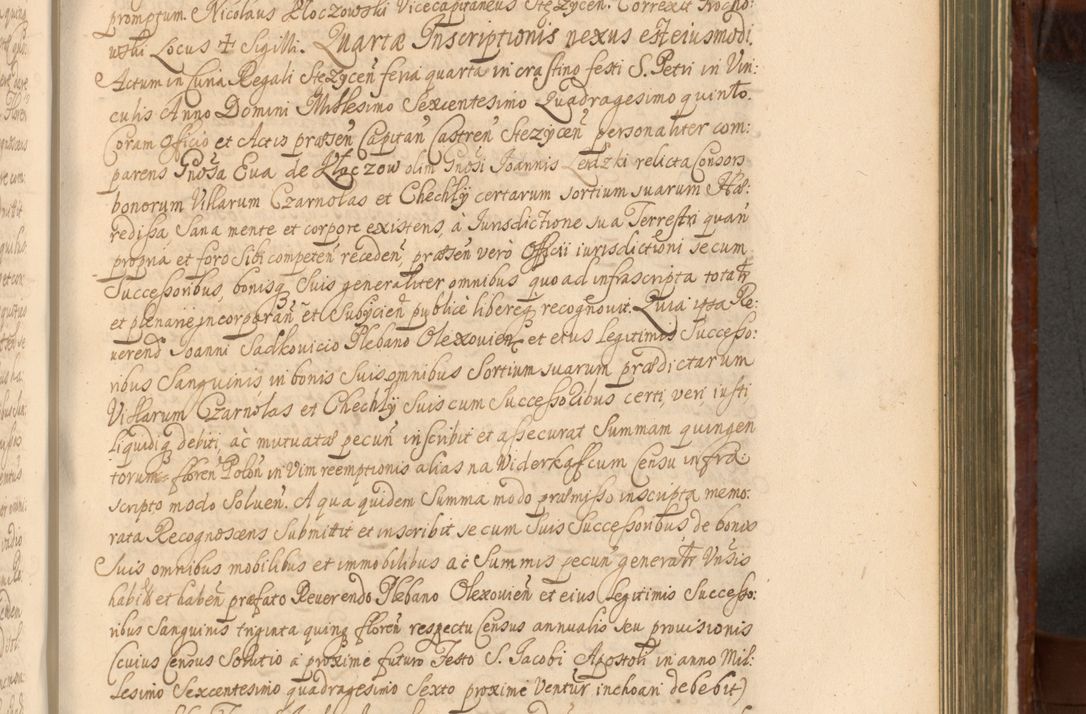 promptum. Nicolaus Kłoczowski Vicecapitaneus Stezÿcen̄. Correxit Trochо:
wski Locus ✝ Sigilli. Quartæ Inscriptionis nexus est eiusmodi.
Actum in Curia Regali Stezÿceñ feria quarta in crastino festi S. Petri in Vin:
culis Anno Domini Millesimo Sexcentesimo Quadragesimo quinto.
Coram Officio et Actis præseñ Capitañ Castreñ Stezÿceñ personaliter com:
parens Gnōsa Eva de Kłoczow olim Gnōsi Joannis Ledzki relicta Consors
bonorum Villarum Czarnolas et Chechłÿ certarum sortium suarum Hæ:
redissa, sana mente et corpore existens, à Jurisdictione sua Terrestri quañ
propria et foro sibi competeñ recedeñ, præseñ verò Officii iurisdictioni se cum
Successoribus, bonisq̃ Suis generaliter omnibus quo ad infrascripta totałr
et plenarie incorporañ et Subÿcieñ publicè libereq̃ recognovit. Quia ipsa Re:
verend Joanni Sadkovicio Plebano Olexovieñ et eius Legitimis Successo:
ribus Sanguinis in bonis Suis omnibus Sortium suarum prædictarum
Villarum Czarnolas et Chechłÿ Suis cum Successoribus certi, veri iusti
liquidiq̃ debiti, ac mutuatæ pecuñ inscribit et assecurat Summam quingen
torum floreñ Poloñ in Vim reemptionis alias na Widerkaff cum Censu infra:
scripto modo Solveñ. A qua quidem Summa modo præmisso inscripta memo:
rata Recognoscens Submittit et inscribit se cum Suis Successoribus de bonis
Suis omnibus mobilibus et immobilibus ac Summis pecuñ generałr Vnisis
habił et habeñ præfato Reverendo Plebano Olexovieñ et eius Legitimis Successo:
ribus Sanguinis triginta quinq̃ floreñ respectu Census annualis seu provisionis
(cuius Census Solutio a proximè futuro Festo S. Jacobi Apostoli in anno Mil:
lesimo Sexcentesimo quadragesimo Sexto proximè Ventur̃ inchoari debebit)